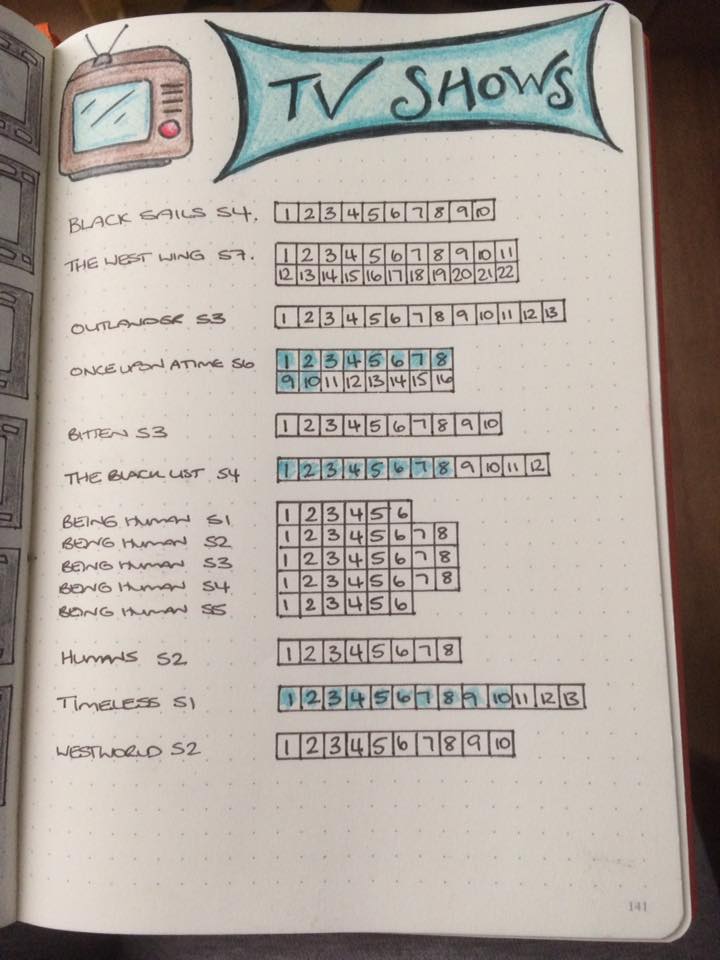 TV SHOWS
BLACK SAILS S4. 1 2 3 4 5 6 7 8 9 10
THE WEST WING S7. 1 2 3 4 5 6 7 8 9 10 11
12 13 14 15 16 17 18 19 20 21 22
OUTLANDER S3 1 2 3 4 5 6 7 8 9 10 11 12 13
ONCE UPON A TIME S6 1 2 3 4 5 6 7 8
9 10 11 12 13 14 15 16
BITTEN S3 1 2 3 4 5 6 7 8 9 10
THE BLACK LIST S4 1 2 3 4 5 6 7 8 9 10 11 12
BEING HUMAN S1 1 2 3 4 5 6
BEING HUMAN S2 1 2 3 4 5 6 7 8
BEING HUMAN S3 1 2 3 4 5 6 7 8
BEING HUMAN S4 1 2 3 4 5 6 7 8
BEING HUMAN S5 1 2 3 4 5 6
HUMANS S2 1 2 3 4 5 6 7 8
TIMELESS S1 1 2 3 4 5 6 7 8 9 10 11 12 13
WESTWORLD S2 1 2 3 4 5 6 7 8 9 10
141